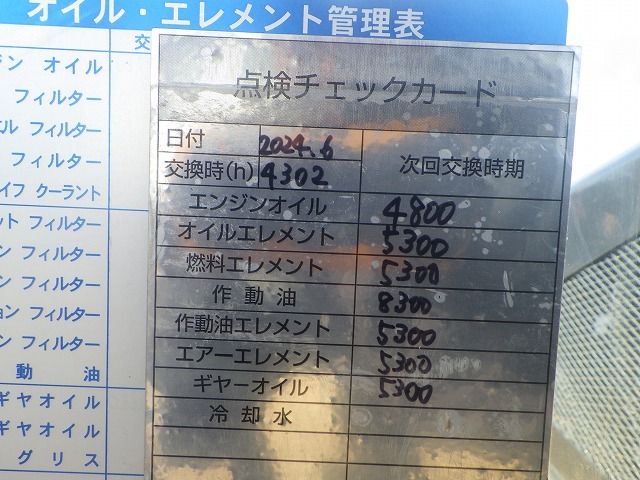 オイル・エレメント管理表
交
ジン オイル
フィルター
ル フィルター
フィルター
イフ クーラント
ット フィルター
ン フィルター
ン フィルター
ョン フィルター
ン フィルター
動 油
ギヤオイル
ギヤオイル
グリス
点検チェックカード
日付 2024.6
交換時(h) 4302 次回交換時期
エンジンオイル 4800
オイルエレメント 5300
燃料エレメント 5300
作動油 8300
作動油エレメント 5300
エアーエレメント 5300
ギヤーオイル 5300
冷却水